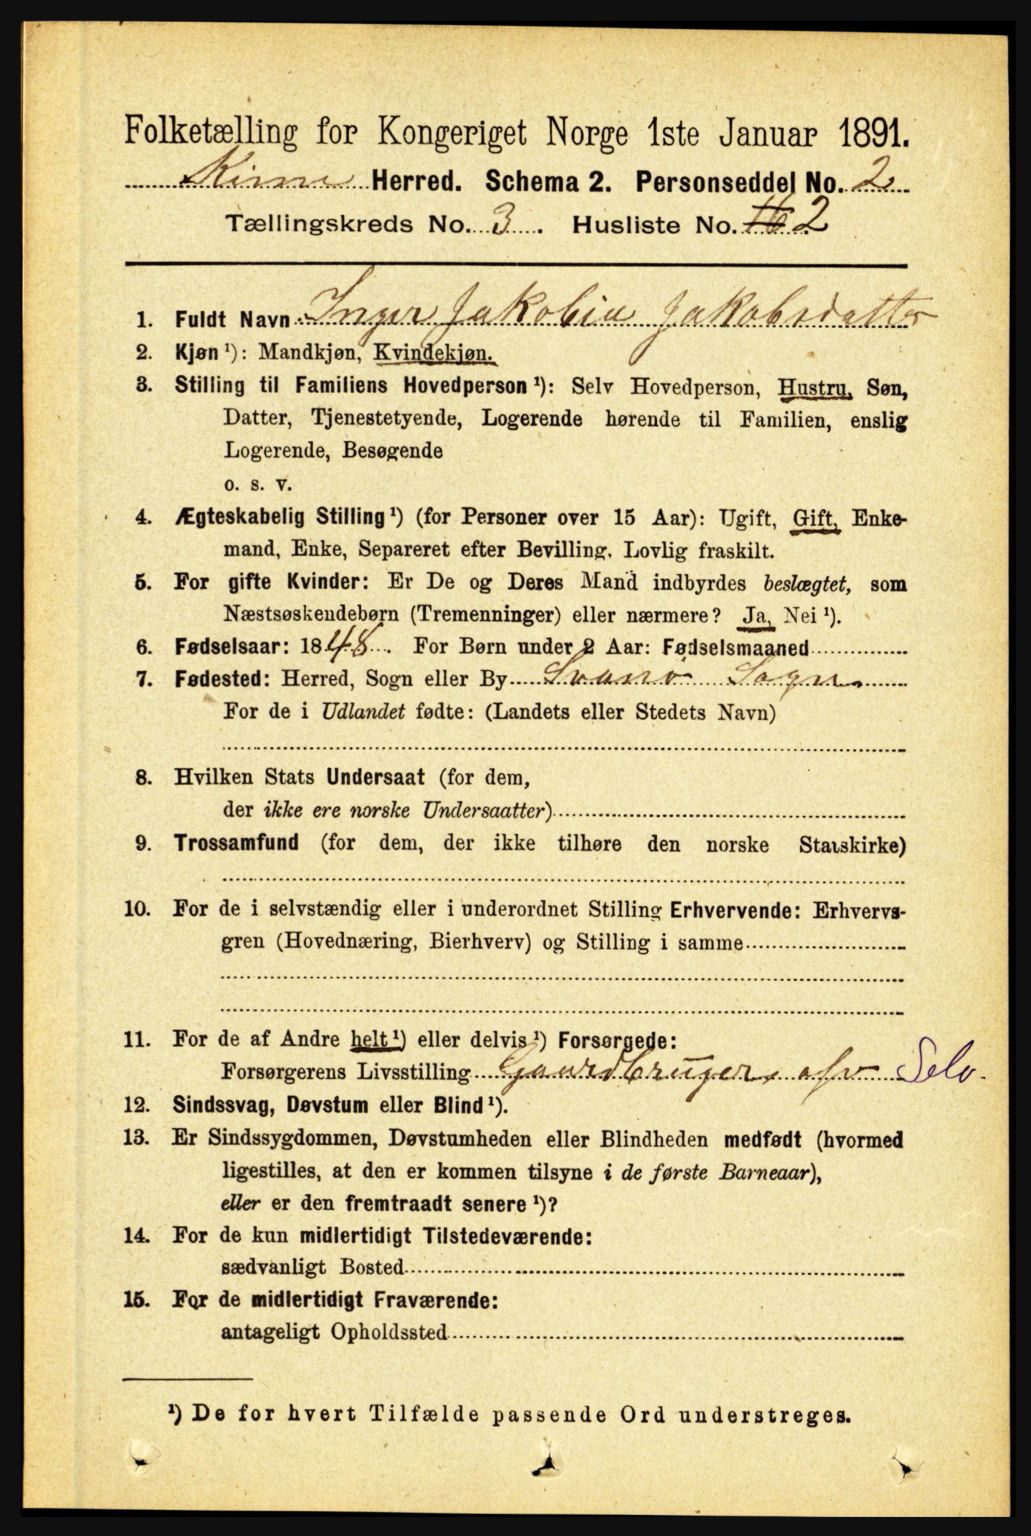 Folketælling for Kongeriget Norge 1ste Januar 1891.
Kinn Herred. Schema 2. Personseddel No. 2
Tællingskreds No. 3. Husliste No. 116 2
1. Fuldt Navn Inger Jakobia Jakobsdatter
2. Kjøn ¹): Mandkjøn, Kvindekjøn.
3. Stilling til Familiens Hovedperson ¹): Selv Hovedperson, Hustru, Søn,
Datter, Tjenestetyende, Logerende hørende til Familien, enslig
Logerende, Besøgende
o. s. v.
4. Ægteskabelig Stilling ¹) (for Personer over 15 Aar): Ugift, Gift, Enke-
mand, Enke, Separeret efter Bevilling. Lovlig fraskilt.
5. For gifte Kvinder: Er De og Deres Mand indbyrdes beslægtet, som
Næstsøskendebørn (Tremenninger) eller nærmere? Ja, Nei ¹).
6. Fødselsaar: 1848. For Børn under 2 Aar: Fødselsmaaned
7. Fødested: Herred, Sogn eller By Svanø Sogn
For de i Udlandet fødte: (Landets eller Stedets Navn)
8. Hvilken Stats Undersaat (for dem,
der ikke ere norske Undersaatter)
9. Trossamfund (for dem, der ikke tilhøre den norske Statskirke)
10. For de i selvstændig eller i underordnet Stilling Erhvervende: Erhvervs-
gren (Hovednæring, Bierhverv) og Stilling i samme
11. For de af Andre helt ¹) eller delvis ¹) Forsørgede:
Forsørgerens Livsstilling Gaardbruger, afv Selv.
12. Sindssvag, Døvstum eller Blind ¹).
13. Er Sindssygdommen, Døvstumheden eller Blindheden medfødt (hvormed
ligestilles, at den er kommen tilsyne i de første Barneaar),
eller er den fremtraadt senere ¹)?
14. For de kun midlertidigt Tilstedeværende:
sædvanligt Bosted
15. For de midlertidigt Fraværende:
antageligt Opholdssted
¹) De for hvert Tilfælde passende Ord understreges.